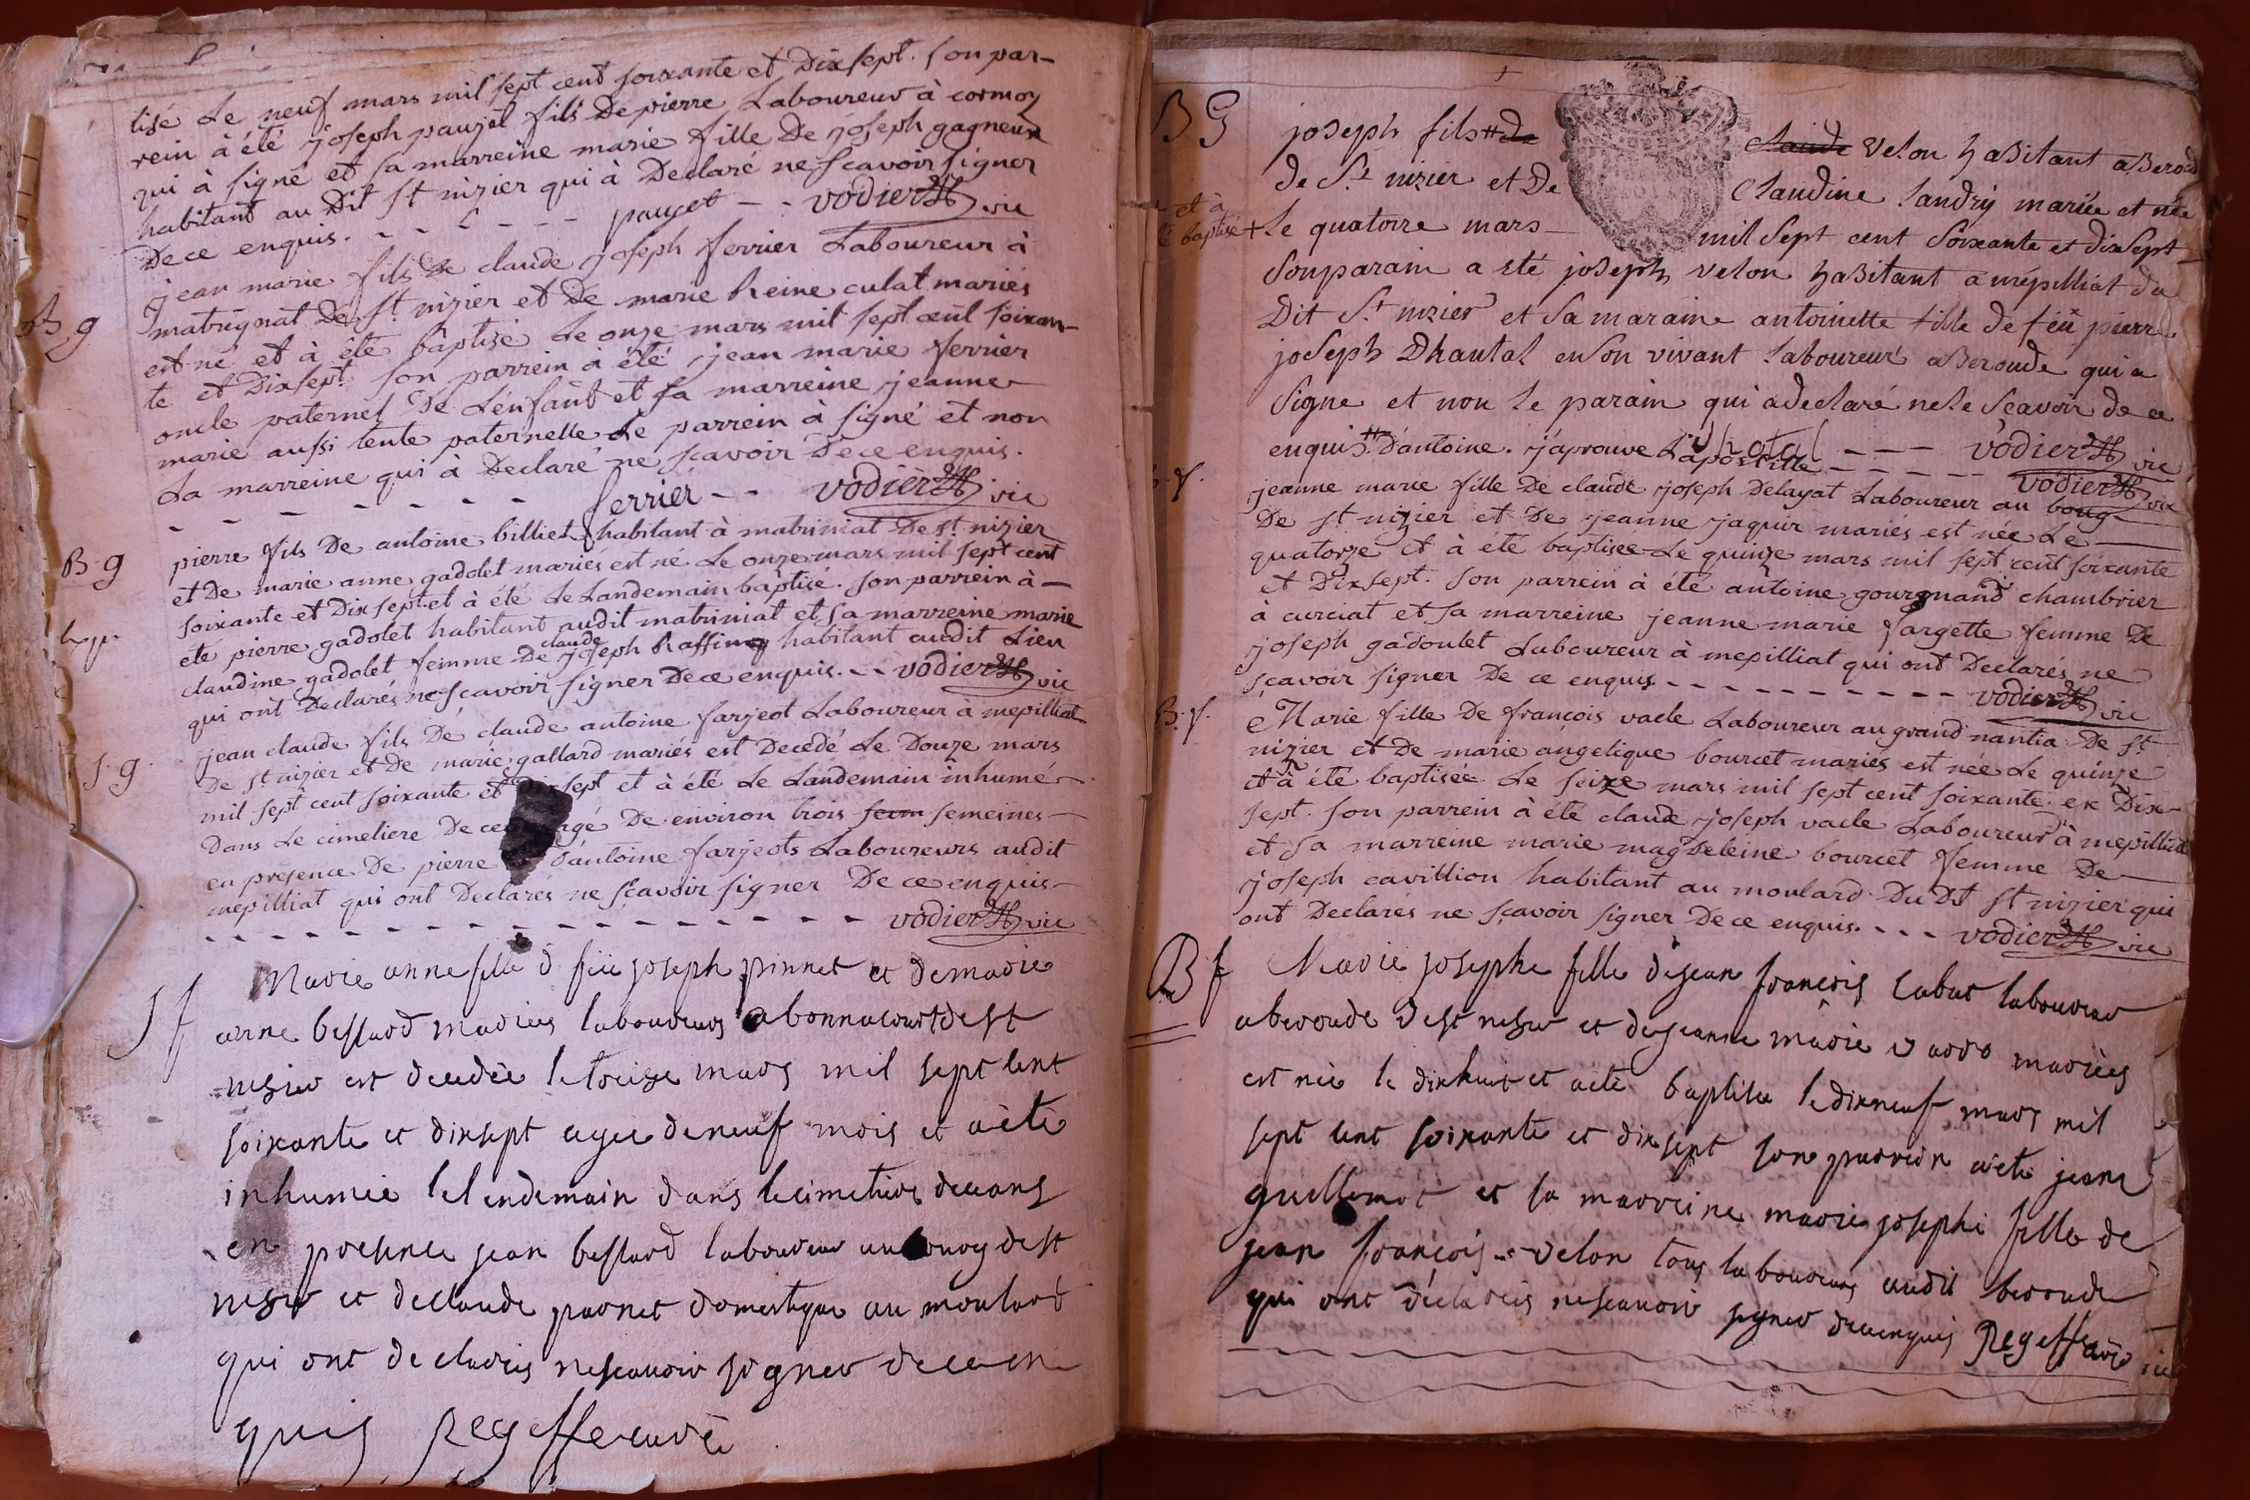 tisé Le neuf mars mil sept cent soixante et Dixsept. son par-
rein à été joseph paujet fils De pierre Laboureur à cormoz
qui à signé et sa marreine marie fille De joseph gagneux
habitant au Dit st nizier qui à Declaré ne sçavoir signer
De ce enquis. - - - - - - paujet - - vodier vic
B. g
jean marie fils De claude joseph ferrier Laboureur à
matrignat De st nizier et De marie Reine culat mariés
est né et à été baptisé Le onze mars mil sept cent soixan-
te et Dixsept. son parrein à été jean marie ferrier
oncle paternel De L'enfant et sa marreine jeanne
marie aussi tente paternelle Le parrein à signé et non
La marreine qui à Declaré ne sçavoir De ce enquis.
- - - - - - - ferrier - - vodier vic
B. g
pierre fils De antoine billiet habitant à matriniat De st nizier
et De marie anne gadolet mariés est né Le onze mars mil sept cent
soixante et Dixsept et à été Le Landemain baptisé. son parrein à -
ete pierre gadolet habitant audit matriniat et sa marreine marie
claudine gadolet femme De claude joseph Raffin habitant audit Lieu
qui ont Declarés ne sçavoir signer De ce enquis. - - vodier vic
S. g
jean claude fils De claude antoine farjeot Laboureur à mepilliat
De st nizier et De marie gallard mariés est Decedé Le Douze mars
mil sept cent soixante et Dixsept et à été Le Landemain inhumé
Dans Le cimetiere De ce agé De environ trois sem semeines -
en presence De pierre D'antoine farjeots Laboureurs audit
mepilliat qui ont Declarés ne sçavoir signer De ce enquis -
- - - - - - - - - - - - - - - - - - vodier vic
S f
Marie anne fille d feü joseph pinnet et de marie
anne bessard mariées laboureurs a bonnacourt de st
nesier est decedée le treize mars mil sept cent
soixante et dixsept agee de neuf mois et a ete
inhumée le lendemain dans le cimetiere de ceans
en presence jean bessard laboureur au bourg de st
nesier et de claude parnet domestique au moulard
qui ont declareis ne scavoir signer de ce en
quis Regeffe curé
B G
joseph fils # de Claude Velon habitant a Beroude
de St nizier et De Claudine Landry mariée et née
et à
été baptisé +
Le quatorze mars - mil Sept cent Soixante et dixSept
Son parain a été joseph velon habitant a mépilliat du
Dit St nizier et Sa maraine antoinette fille de feü pierre
joseph Dhautal enson vivant laboureur a Beroude qui a
Signe et non le parain qui a declaré ne le Scavoir de ce
enquis # D'antoine. j'aprouve L'apostille - - - vodier vic
vodier vic
B. f.
jeanne marie fille De claude joseph Delayat Laboureur au boug
De st nizier et De jeanne jaquir mariés est née Le -
quatorze et à été baptisée Le quinze mars mil sept cent soixante
et Dixsept. son parrein à été antoine gourmand chambrier
à curciat et sa marreine jeanne marie fargette femme De
joseph gadoulet Laboureur à mepilliat qui ont Declarés ne
sçavoir signer De ce enquis - - - - - - - - - - vodier vic
B. f.
Marie fille De françois vacle Laboureur au grand nantia De st
nizier et De marie angelique bourcet mariés est née Le quinze
et à été baptisée Le seize mars mil sept cent soixante et Dix-
sept. son parrein à été claude joseph vacle Laboureur à mepilliat
et sa marreine marie magdeleine bourcet femme De -
joseph cavillion habitant au moulard Du Dt st nizier qui
ont Declarés ne sçavoir signer De ce enquis. - - - vodier vic
B f
Marie josephe fille de jean françois Cabut laboureur
a beroude de st nesier et de jeanne marie mariées
est née le dixhuit et a ete baptisee le dixneuf mars mil
sept cent soixante et dixsept son parrein a ete jean
guillemot et sa marreine marie josephe fille de
jean françois velon tous laboureurs audit beroude
qui ont declareis ne scavoir signer de ce enquis Regeffe curé